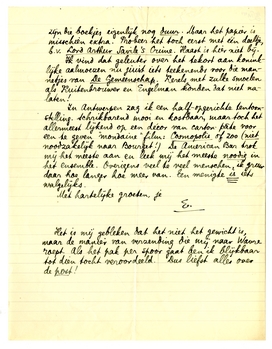 zijn die boekjes eigenlijk nog duur. Maar het papier is
misschien extra? Probeer het toch eerst met een deeltje,
b.v. Lord Arthur Savile's Crime. Haast is hier niet bij.
Ik vind dat geleuter over het tekort aan konink-
lijke aalmoezen nu juist iets teekenends voor de man-
netjes van De Gemeenschap. Kerels met zulke smoelen
als Kuitenbrouwer en Engelman konden dat niet na-
laten!
In Antwerpen zag ik een half-afgerichte tentoon-
stelling, schrikbarend mooi en kostbaar, maar toch het
allermeest lijkend op een décor van carton pâte voor
een te geven mondaine film: Cosmopolis of zoo (niet
noodzakelijk naar Bourget!) De American Bar trok
mij het meeste aan en leek mij het meeste noodig in
het ensemble. Overigens veel te veel menschen, ik gruw
daar hoe langer hoe meer van. Een menigte is iets
walgelijks.
Met hartelijke groeten, je
E.
Het is mij gebleken dat het niet het gewicht is,
maar de manier van verzending die mij naar Wavre
roept. Als het pak per spoor gaat ben ik blijkbaar
tot dien tocht veroordeeld. Dus liefst alles over
de post!